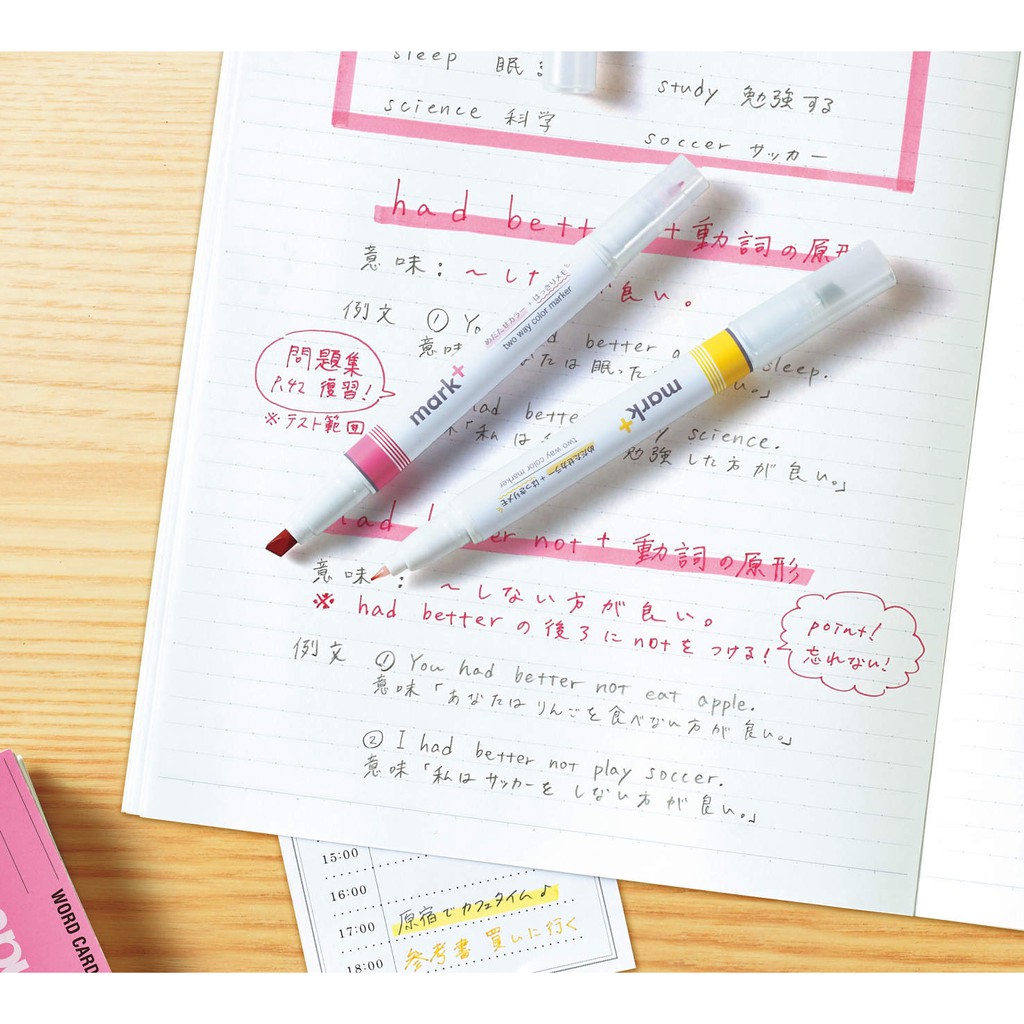 sleep 眠
study 勉強する
science 科学
soccer サッカー
had bett + 動詞の原形
意味：〜した 良い。
例文 ① Yo d better a sleep.
意味 なたは眠った 。」
問題集
P.42 復習！
※テスト範囲
had bette y science.
「私は 勉強した方が良い。」
mark+
めだたせカラー + はっきりメモ
two way color marker
mark+
めだたせカラー + はっきりメモ
two way color marker
had b er not + 動詞の原形
意味： 〜しない方が良い。
※ had betterの後ろにnotをつける！
point!
忘れない!
例文 ① You had better not eat apple.
意味「あなたはりんごを食べない方が良い。」
② I had better not play soccer.
意味「私はサッカーをしない方が良い。」
15:00
16:00
17:00 原宿でカフェタイム♪
参考書買いに行く
18:00
WORD CARD